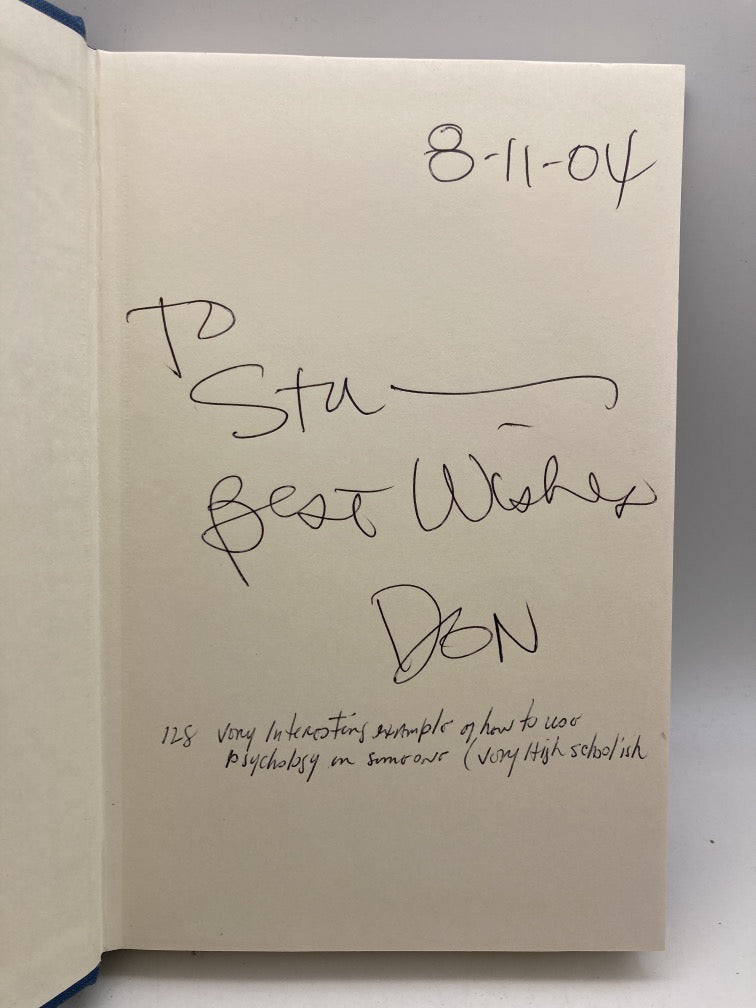 8-11-04
To
Stu
Best Wishes
DON
128 Very Interesting example of how to use
psychology on someone (Very High school'ish